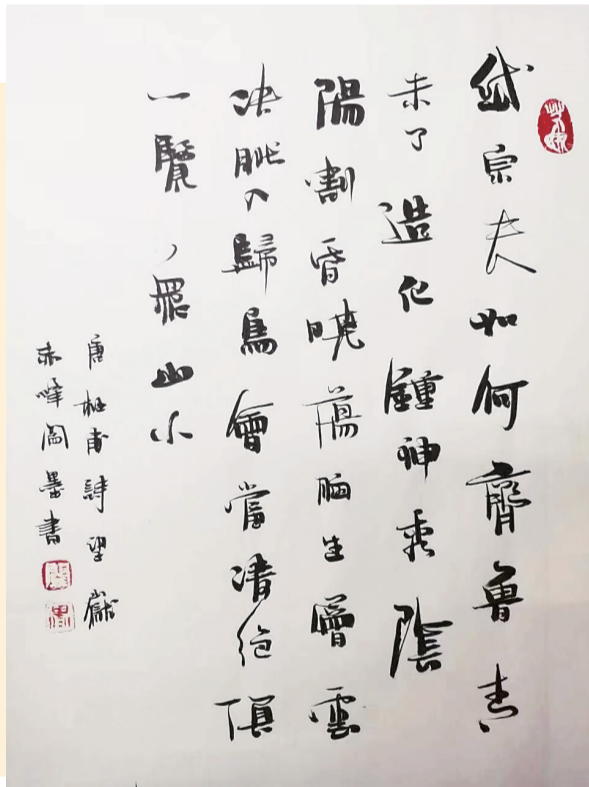 岱宗夫如何齊魯青
未了造化鍾神秀陰
陽割昏曉蕩胸生層雲
决眥入歸鳥會當凌絕頂
一覽眾山小
唐杜甫詩望嶽
赤峰閻墨書